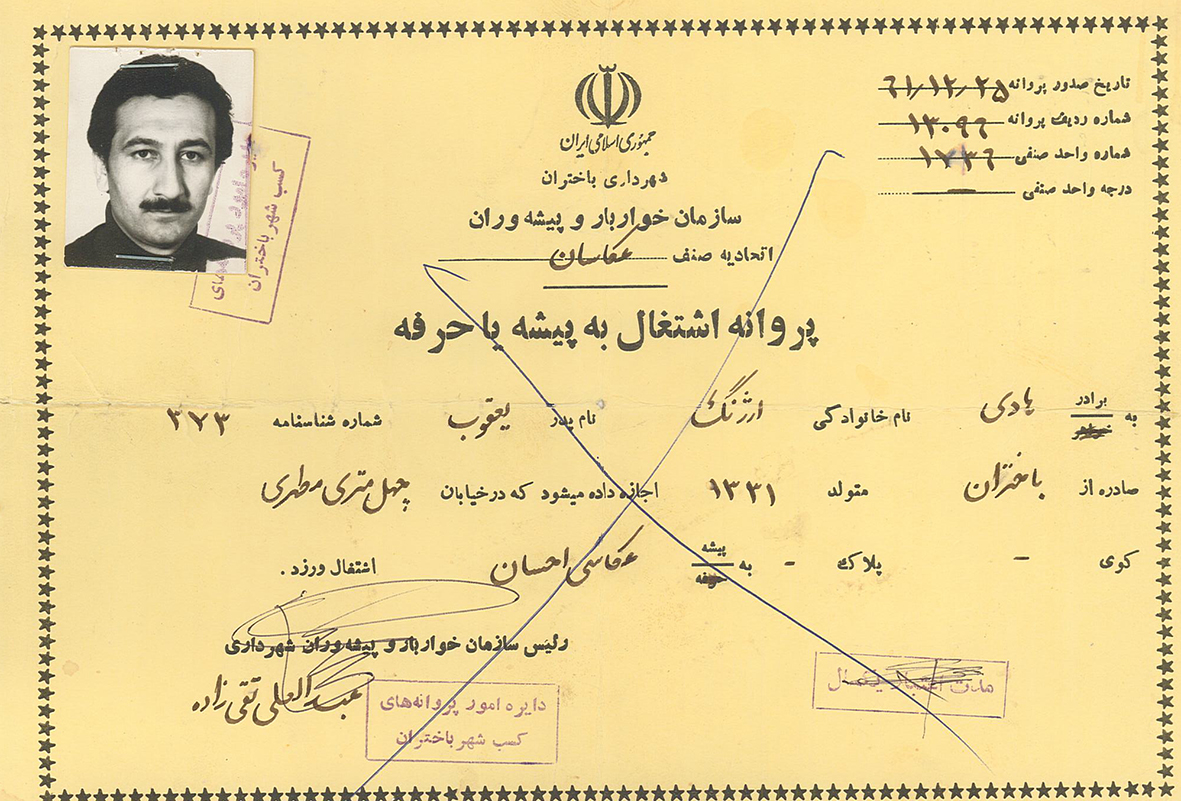 جمهوری اسلامی ایران
شهرداری باختران
سازمان خواربار و پیشه وران
اتحادیه صنف عکاسان
تاریخ صدور پروانه ۶۱/۱۲/۲۵
شماره ردیف پروانه ۱۳۰۹۶
شماره واحد صنفی ۱۷۳۶
درجه واحد صنفی —
پروانه اشتغال به پیشه یا حرفه
به برادر هادی نام خانوادگی ارژنگ نام پدر یعقوب شماره شناسنامه ۳۷۳
صادره از باختران متولد ۱۳۳۱ اجازه داده میشود که در خیابان چهل متری مطهری
کوی - پلاک - به پیشه حرفه عکاسی احسان اشتغال ورزد .
رئیس سازمان خواربار و پیشه وران شهرداری
عبدالعلی تقی زاده
دایره امور پروانه‌های
کسب شهر باختران
مدت اعتبار یکسال
کسب شهر باختران